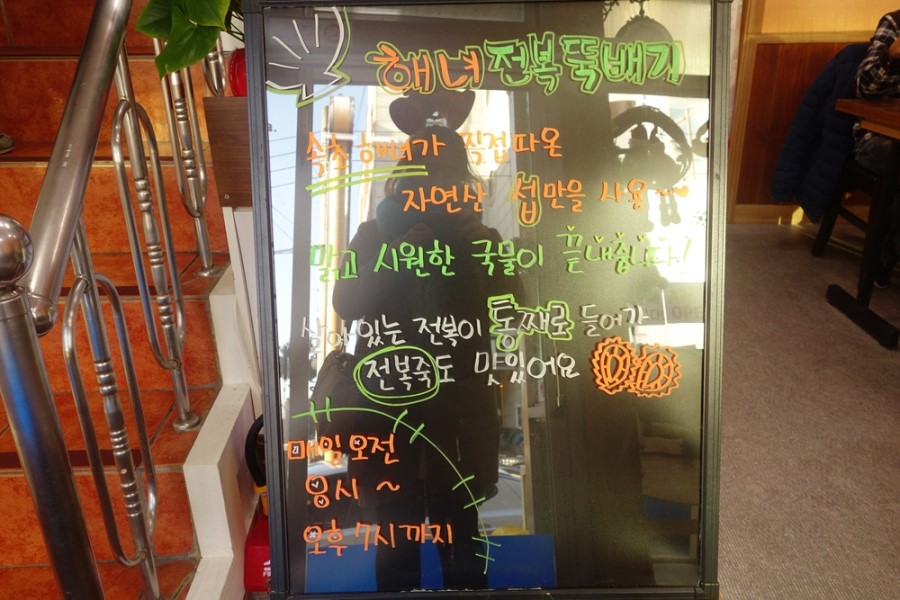 해녀 전복 뚝배기
속초 해녀가 직접 따온
자연산 섭만을 사용~
맑고 시원한 국물이 끝내줍니다!
살아있는 전복이 통째로 들어간
전복죽도 맛있어요
매일 오전
8시 ~
오후 7시까지